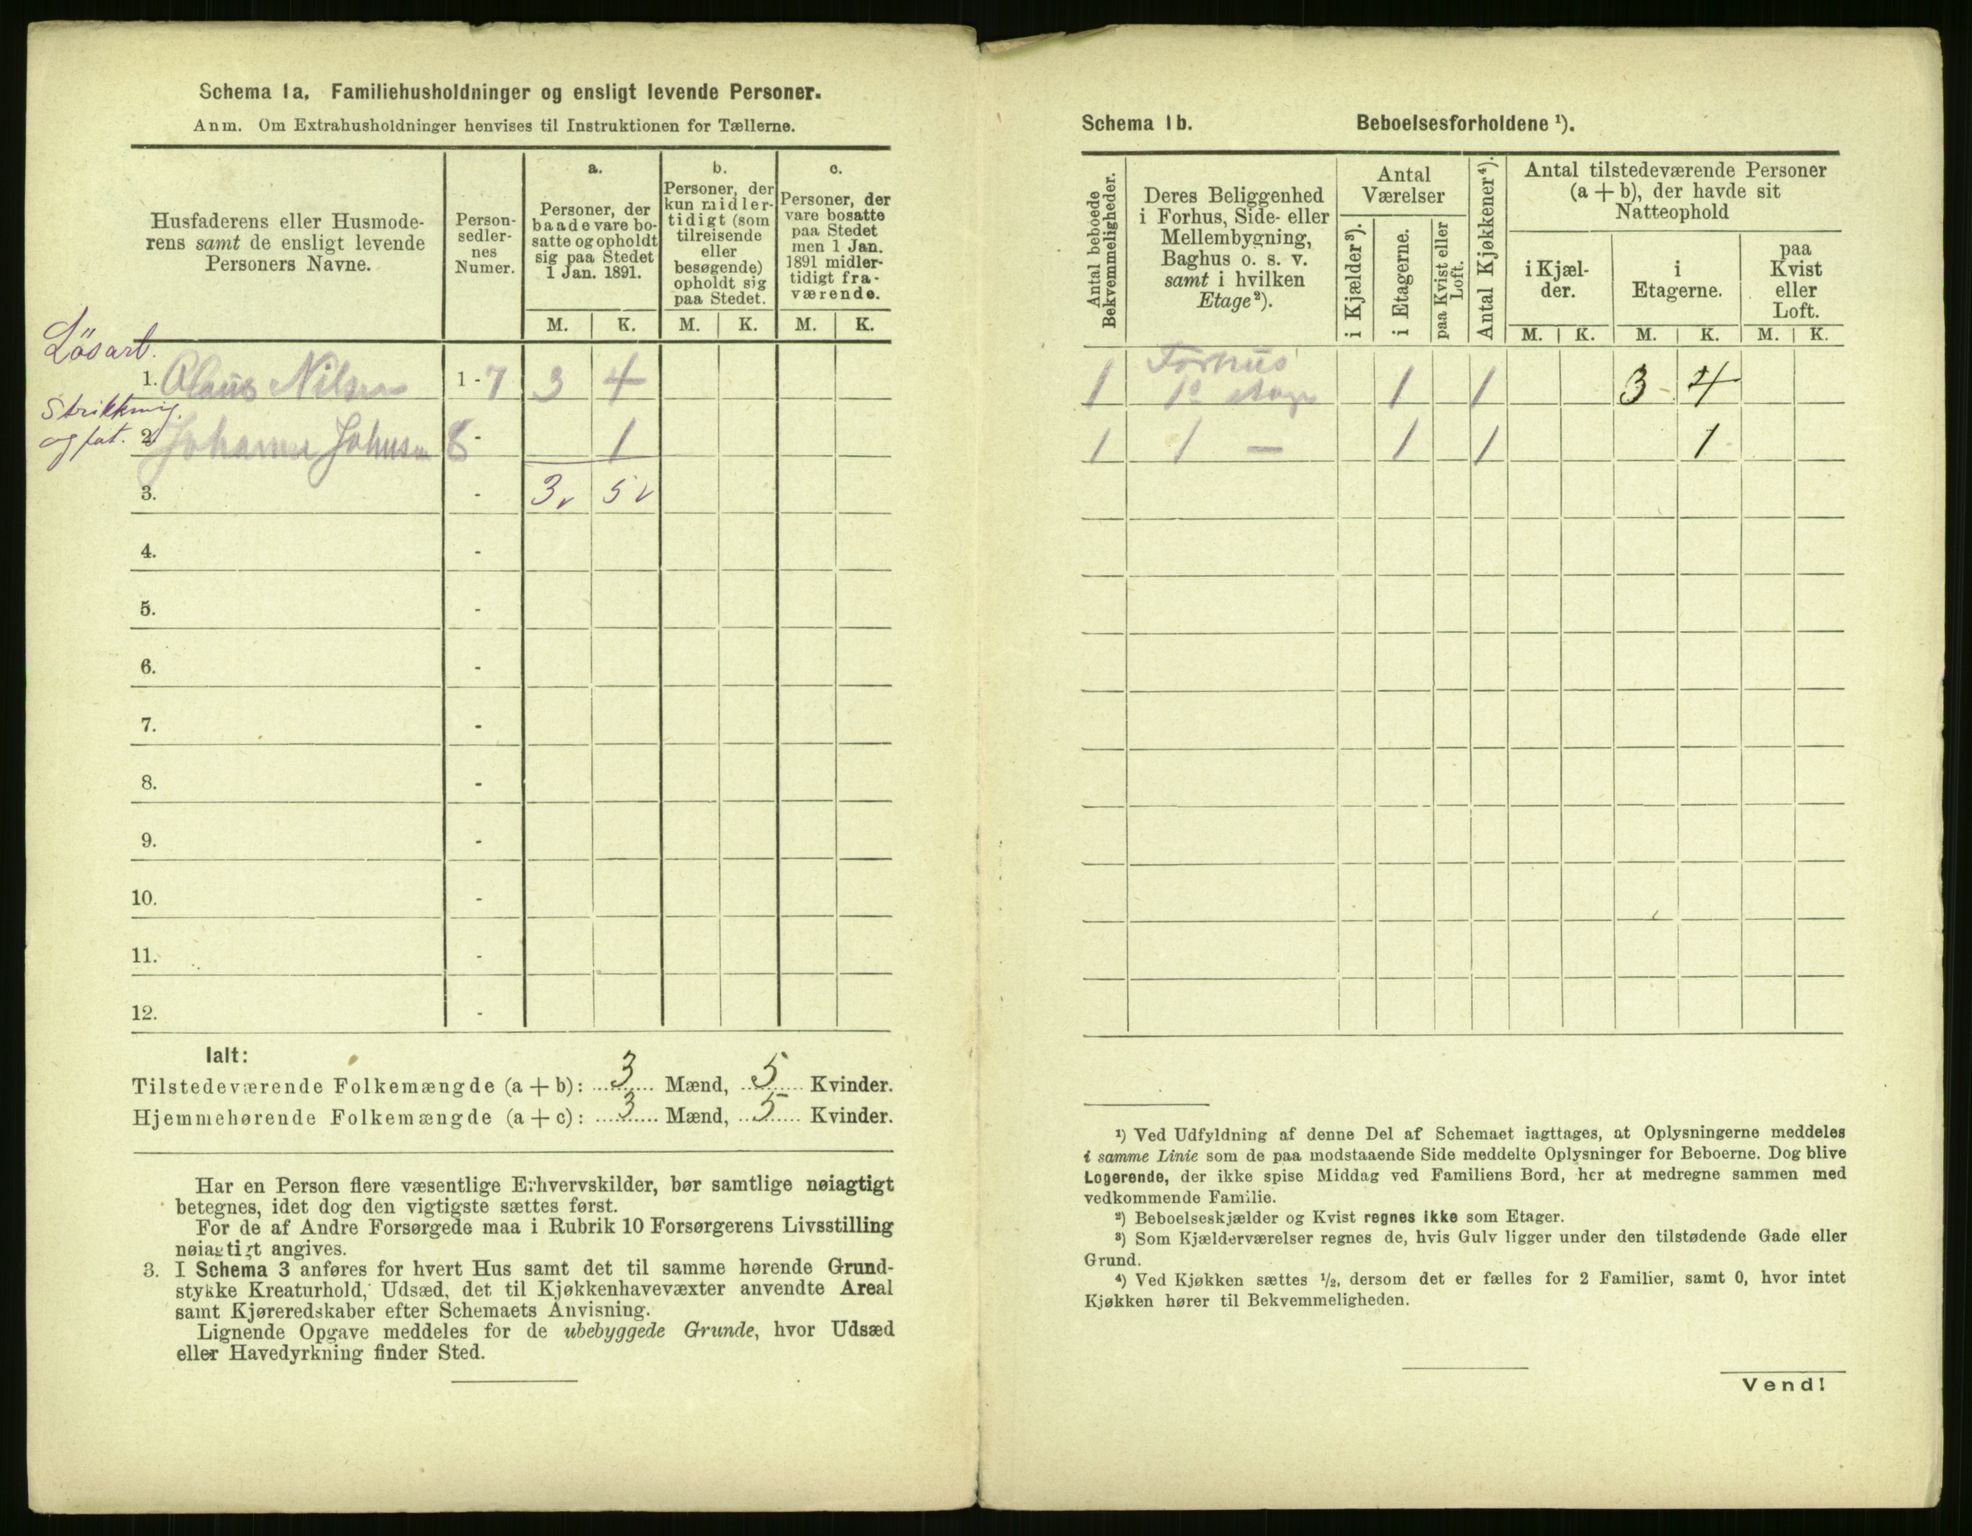 Schema 1a. Familiehusholdninger og ensligt levende Personer.
Anm. Om Extrahusholdninger henvises til Instruktionen for Tællerne.
Husfaderens eller Husmode-
rens samt de ensligt levende
Personers Navne.
Person-
sedler-
nes
Numer.
a.
Personer, der
baade vare bo-
satte og opholdt
sig paa Stedet
1 Jan. 1891.
b.
Personer, der
kun midler-
tidigt (som
tilreisende
eller
besøgende)
opholdt sig
paa Stedet.
c.
Personer, der
vare bosatte
paa Stedet
men 1 Jan.
1891 midler-
tidigt fra-
værende.
M. K. M. K. M. K.
Løsart.
1. Claus Nilsen 1 - 7 3 4
Strikkning
og fat.
2. Johanne Johnsen 8 - 1
3. - 3 5
4. -
5. -
6. -
7. -
8. -
9. -
10. -
11. -
12. -
Ialt:
Tilstedeværende Folkemængde (a + b): 3 Mænd, 5 Kvinder.
Hjemmehørende Folkemængde (a + c): 3 Mænd, 5 Kvinder.
Har en Person flere væsentlige Erhvervskilder, bør samtlige nøiagtigt
betegnes, idet dog den vigtigste sættes først.
For de af Andre Forsørgede maa i Rubrik 10 Forsørgerens Livsstilling
nøiagtigt angives.
3. I Schema 3 anføres for hvert Hus samt det til samme hørende Grund-
stykke Kreaturhold, Udsæd, det til Kjøkkenhavevæxter anvendte Areal
samt Kjøreredskaber efter Schemaets Anvisning.
Lignende Opgave meddeles for de ubebyggede Grunde, hvor Udsæd
eller Havedyrkning finder Sted.
Schema 1b. Beboelsesforholdene ¹).
Antal beboede
Bekvemmeligheder.
Deres Beliggenhed
i Forhus, Side- eller
Mellembygning,
Baghus o. s. v.
samt i hvilken
Etage²).
Antal
Værelser
i Kjælder³).
i Etagerne.
paa Kvist eller
Loft.
Antal Kjøkkener⁴).
Antal tilstedeværende Personer
(a + b), der havde sit
Natteophold
i Kjæl-
der.
i
Etagerne.
paa
Kvist
eller
Loft.
M. K. M. K. M. K.
1 Forhus
1ª etage 1 1 3 - 4
1 1 — 1 1 1
¹) Ved Udfyldning af denne Del af Schemaet iagttages, at Oplysningerne meddeles
i samme Linie som de paa modstaaende Side meddelte Oplysninger for Beboerne. Dog blive
Logerende, der ikke spise Middag ved Familiens Bord, her at medregne sammen med
vedkommende Familie.
²) Beboelseskjælder og Kvist regnes ikke som Etager.
³) Som Kjælderværelser regnes de, hvis Gulv ligger under den tilstødende Gade eller
Grund.
⁴) Ved Kjøkken sættes ½, dersom det er fælles for 2 Familier, samt 0, hvor intet
Kjøkken hører til Bekvemmeligheden.
Vend!